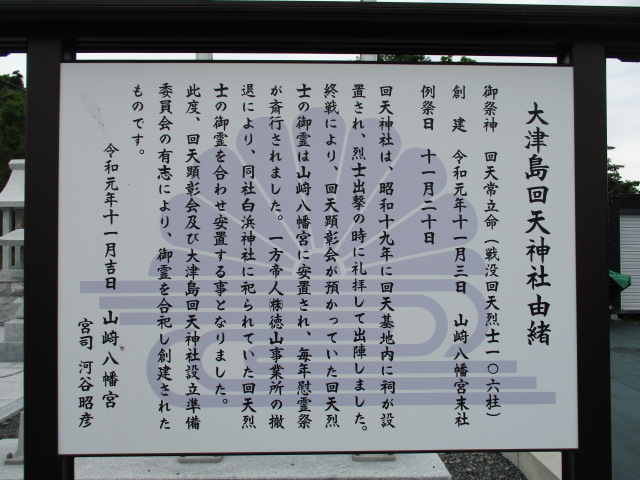 大津島回天神社由緒
御祭神　回天常立命（戦没回天烈士一〇六柱）
創建　令和元年十一月三日　山﨑八幡宮末社
例祭日　十一月二十日
回天神社は、昭和十九年に回天基地内に祠が設
置され、烈士出撃の時に礼拝して出陣しました。
終戦により、回天顕彰会が預かっていた回天烈
士の御霊は山﨑八幡宮に安置され、毎年慰霊祭
が斎行されました。一方帝人㈱徳山事業所の撤
退により、同社白浜神社に祀られていた回天烈
士の御霊を合わせ安置する事となりました。
此度、回天顕彰会及び大津島回天神社設立準備
委員会の有志により、御霊を合祀し創建された
ものです。
令和元年十一月吉日　山﨑八幡宮
宮司　河谷昭彦